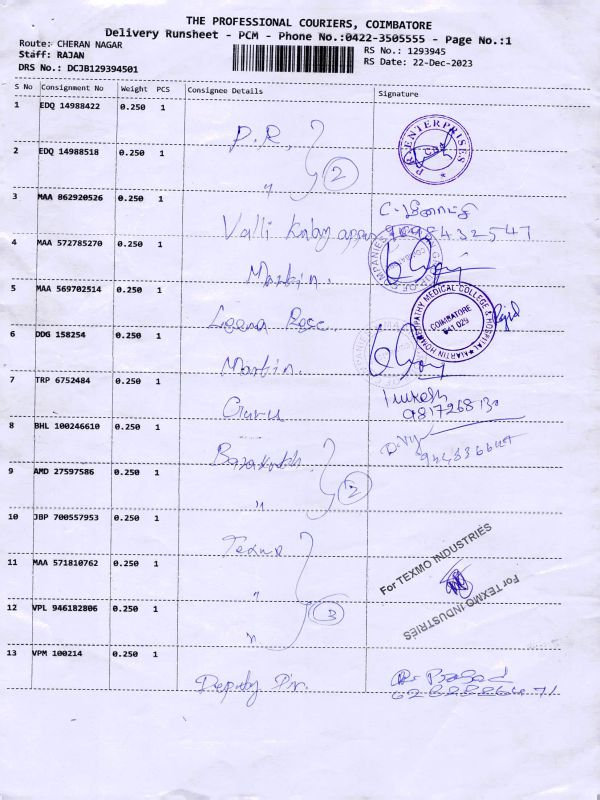 THE PROFESSIONAL COURIERS, COIMBATORE
Delivery Runsheet - PCM - Phone No.:0422-3505555 - Page No.:1
Route: CHERAN NAGAR
RS No.: 1293945
Staff: RAJAN
RS Date: 22-Dec-2023
DRS No.: DCJB129394501
S No Consignment No Weight PCS Consignee Details Signature
1 EDQ 14988422 0.250 1
P.R,
P.R ENTERPRISES
2 EDQ 14988518 0.250 1
" 2
3 MAA 862920526 0.250 1
Valli
4 MAA 572785270 0.250 1
Martin.
5 MAA 569702514 0.250 1
Leema Rose
MARTIN HOMOEOPATHY MEDICAL COLLEGE & HOSPITAL
COIMBATORE
641 029
6 DDG 158254 0.250 1
Martin.
7 TRP 6752484 0.250 1
Guru
8 BHL 100246610 0.250 1
9 AMD 27597586 0.250 1
" 2
10 JBP 700557953 0.250 1
Texmo
For TEXMO INDUSTRIES
11 MAA 571810762 0.250 1
"
For TEXMO INDUSTRIES
12 VPL 946182806 0.250 1
" 3
13 VPM 100214 0.250 1
Deputy Dr.